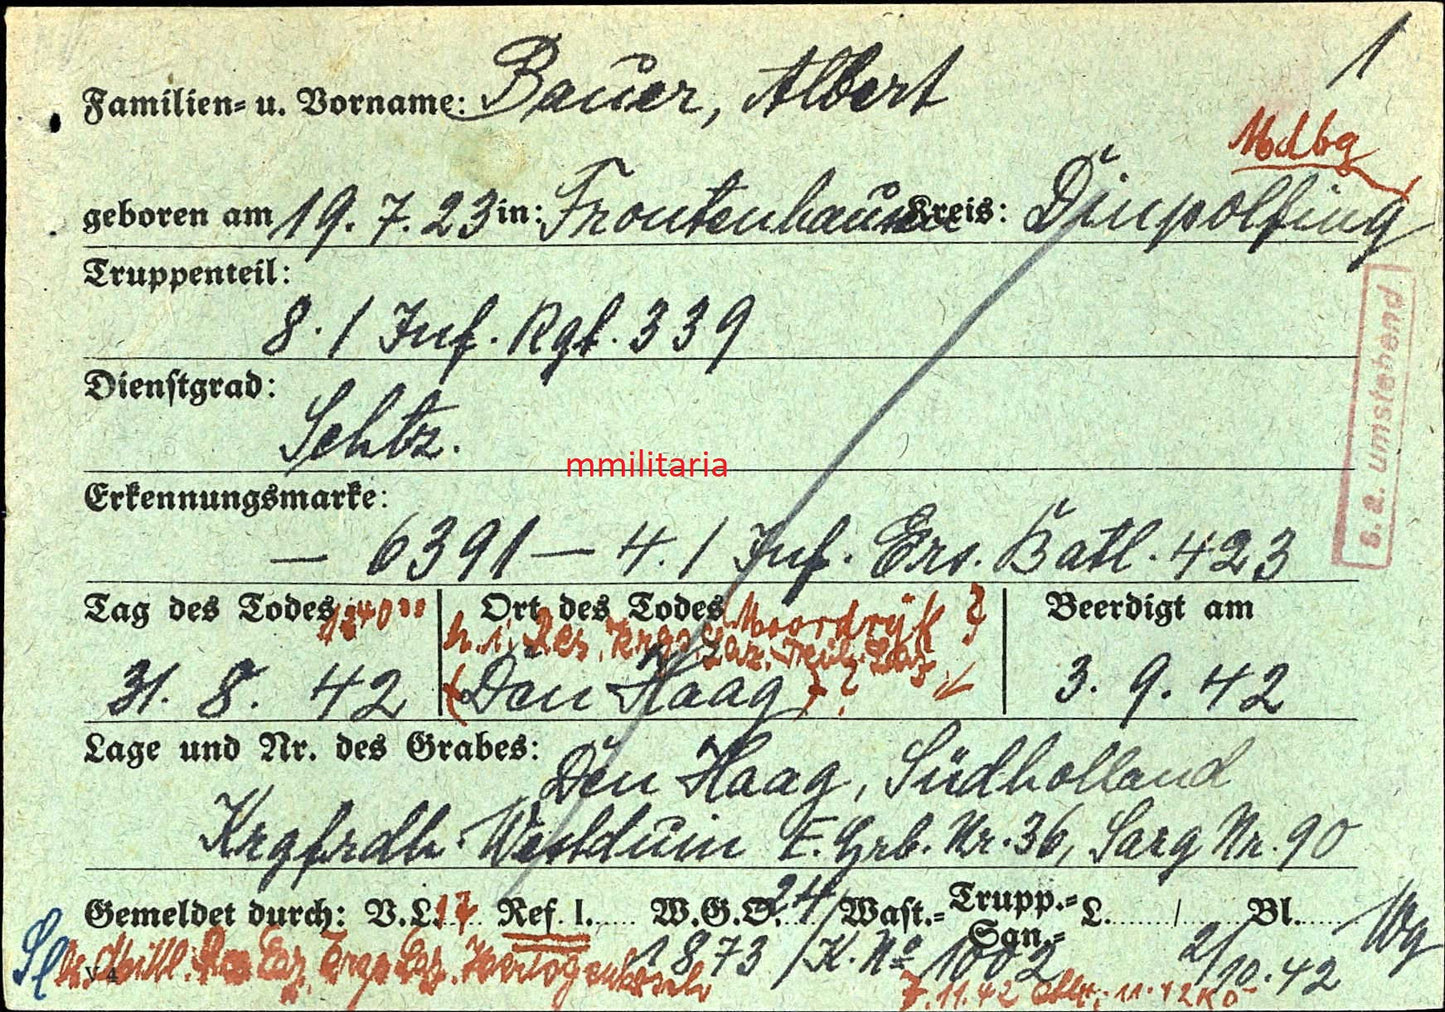 1
Familien= u. Vorname: Bauer, Albert
Mdbg
geboren am 19. 7. 23 in: Frontenhausen Kreis: Dingolfing
Truppenteil:
8. / Inf. Rgt. 339
Dienstgrad:
Schtz.
s. a. umstehend
mmilitaria
Erkennungsmarke:
— 6391 — 4. / Inf. Ers. Batl. 423
Tag des Todes Ort des Todes Moordrijk ? Beerdigt am
Res. Krgs. Laz.
31. 8. 42 (Den Haag) ? 3. 9. 42
Lage und Nr. des Grabes: Den Haag, Südholland
Krgfrdh. Westduin E. Grb. Nr. 36, Sarg Nr. 90
Gemeldet durch: V.L. 17 Ref. I. W.G.O. 24/ Wast.= Trupp.= San.= L. / Bl.
1873 / K. No 1002 2/10. 42
Krgs Laz. Hertogenbosch
7. 11. 42
V 4